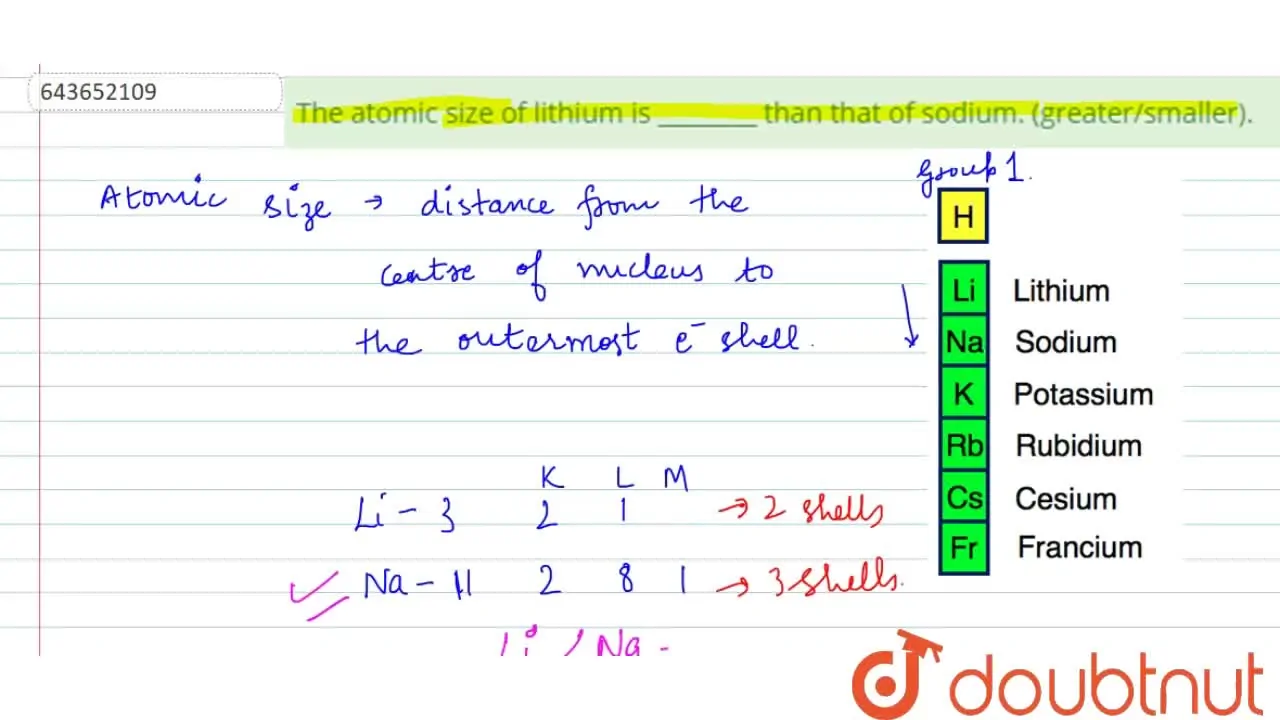 643652109
The atomic size of lithium is ________ than that of sodium. (greater/smaller).
Group 1.
Atomic size → distance from the
centre of nucleus to
the outermost e⁻ shell.
H
Li Lithium
Na Sodium
K Potassium
Rb Rubidium
Cs Cesium
Fr Francium
K L M
Li - 3 2 1 → 2 shells
Na - 11 2 8 1 → 3 shells.
Li Na
doubtnut